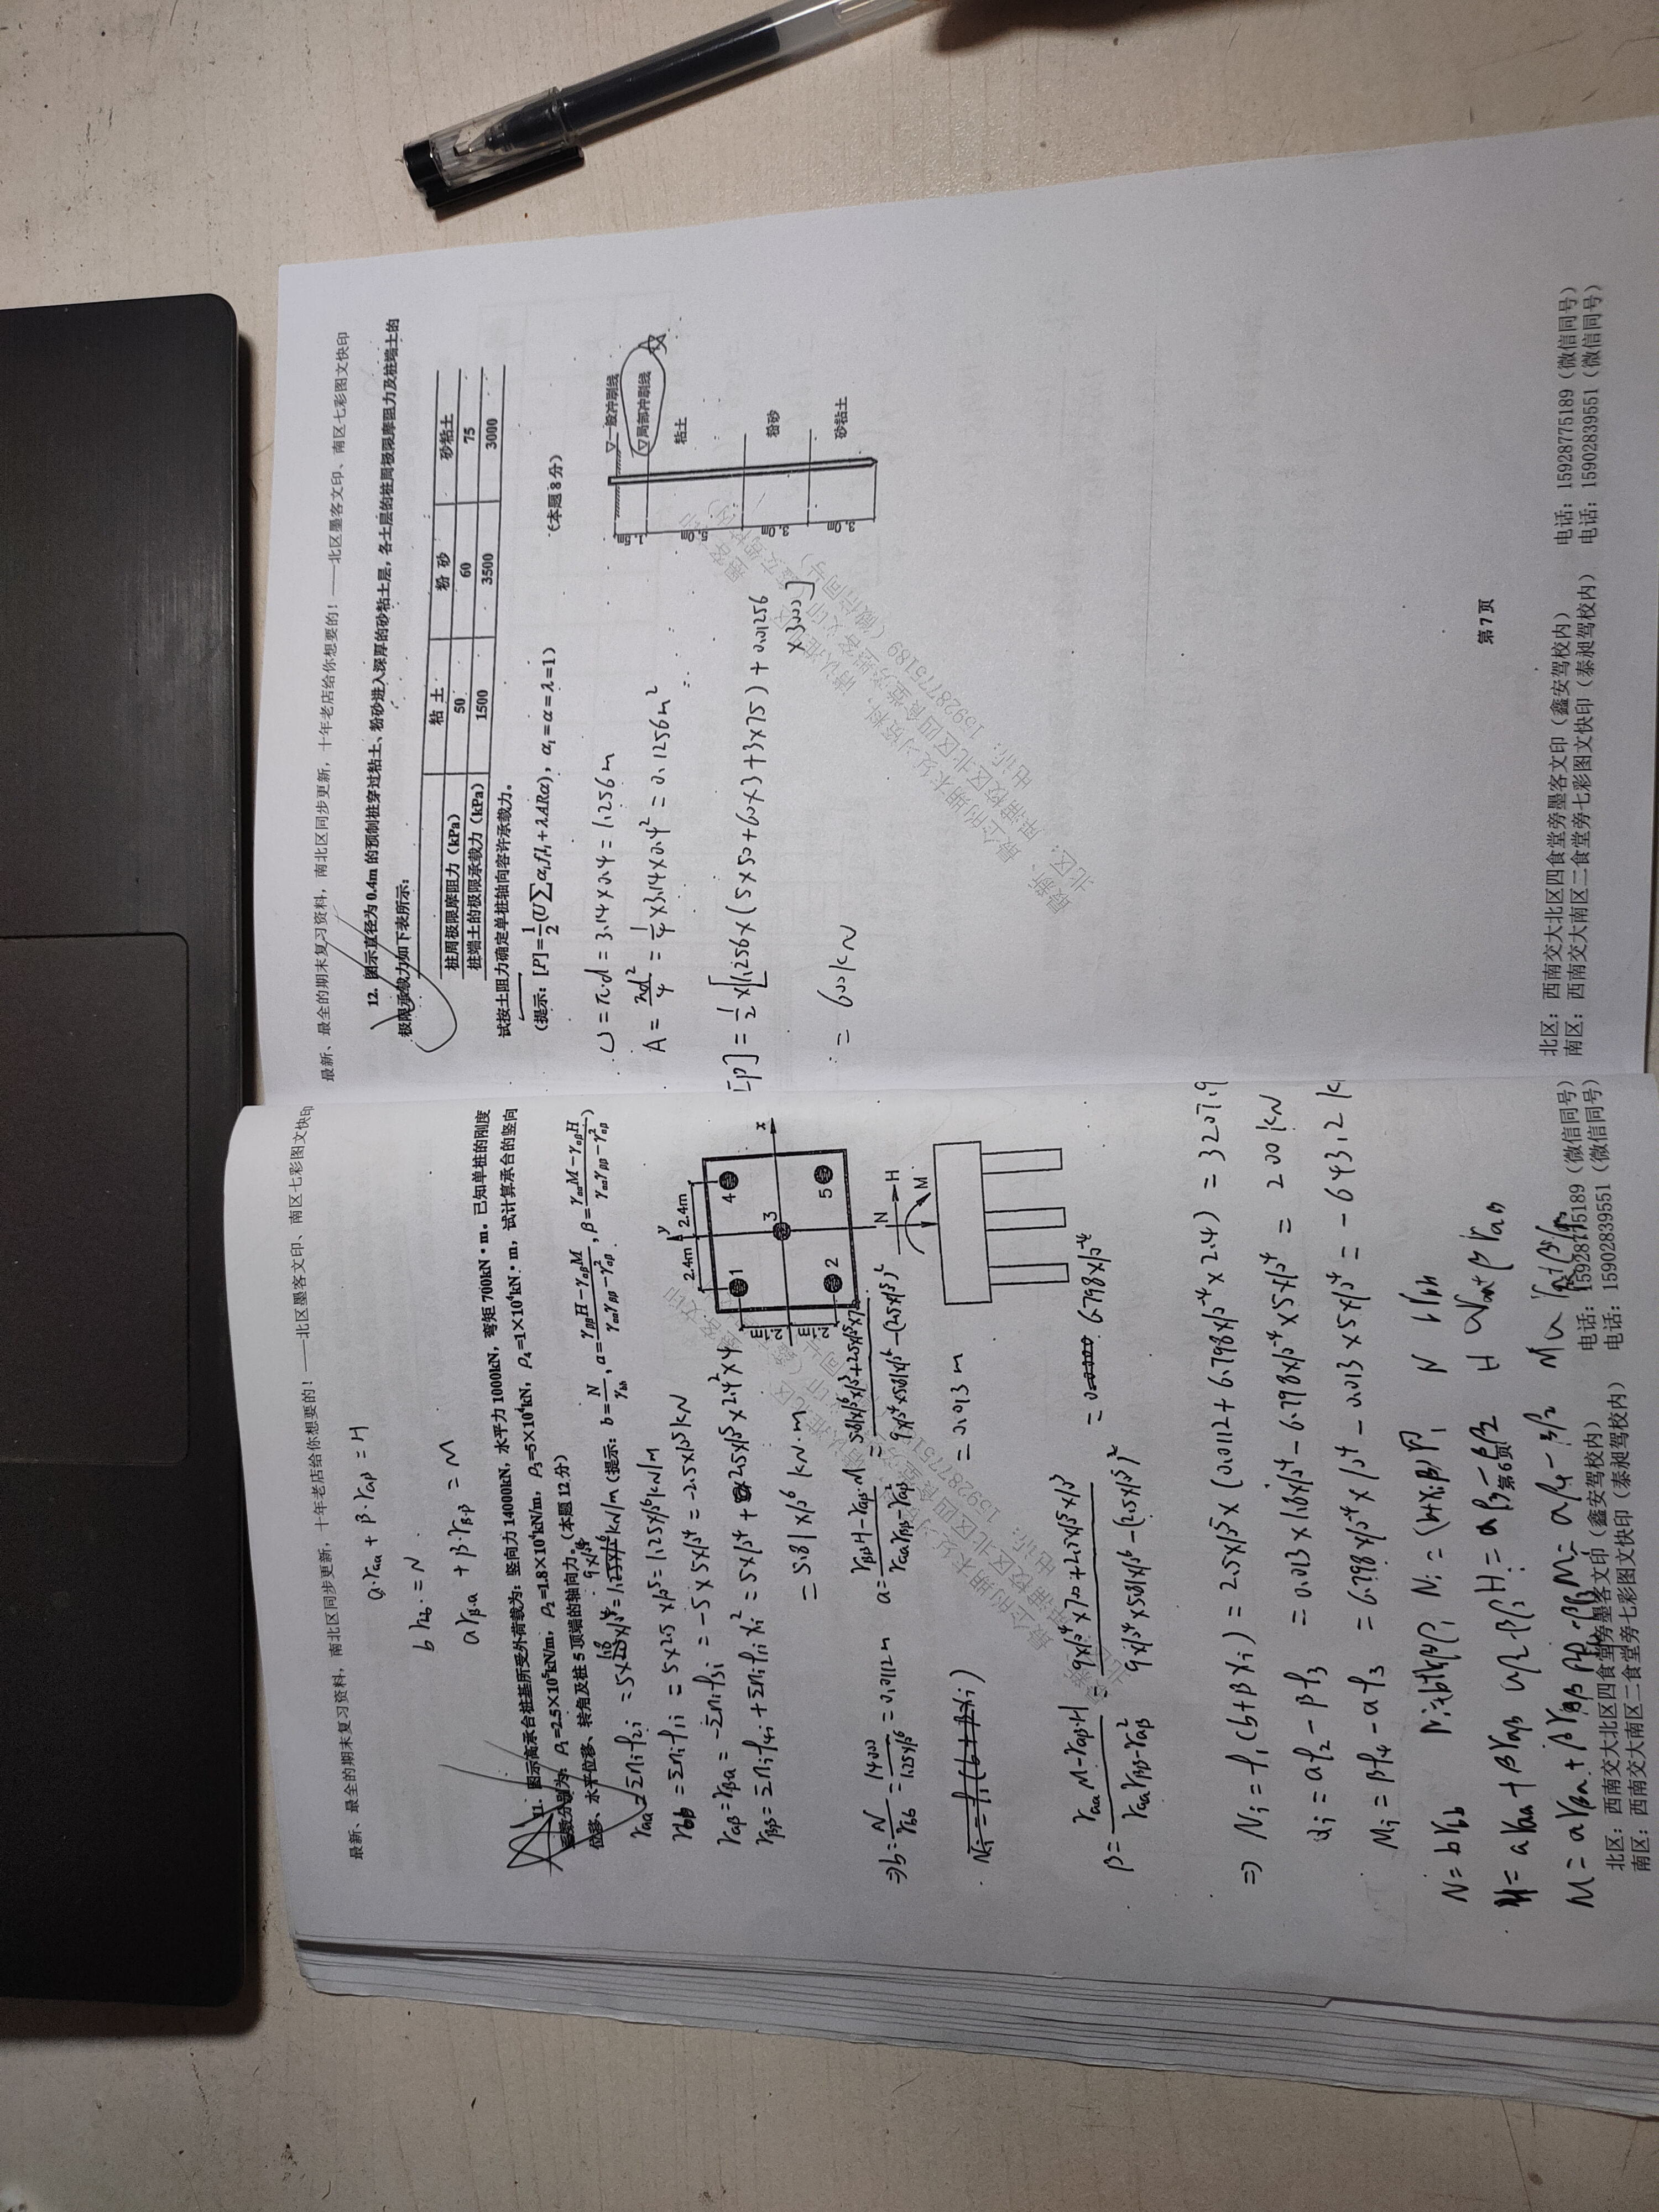 最新、最全的期末复习资料，南北区同步更新，十年老店给你想要的！——北区墨客文印、南区七彩图文快印
a·γaa + β·γaβ = H
bγbb = N
aγβa + β·γββ = M
11. 图示高承台桩基所受外荷载为：竖向力 14000kN，水平力 1000kN，弯矩 700kN·m。已知单桩的刚度
系数分别为：ρ₁=2.5×10⁵kN/m，ρ₂=1.8×10⁴kN/m，ρ₃=5×10⁴kN，ρ₄=1×10⁴kN·m，试计算承台的竖向
位移、水平位移、转角及桩 5 顶端的轴向力。（本题 12 分）
（提示：b=N/γbb，a=(γββH−γaβM)/(γaaγββ−γ²aβ)，β=(γaaM−γaβH)/(γaaγββ−γ²aβ)）
γaa = Σniρ2i = 5×1.8×10⁴ = 9×10⁴ kN/m
γbb = Σniρ1i = 5×2.5×10⁵ = 1.25×10⁶ kN/m
γaβ = γβa = −Σniρ3i = −5×5×10⁴ = −2.5×10⁵ kN
γββ = Σniρ4i + Σniρ1ixi² = 5×10⁴ + 2.5×10⁵×2.4²×4
= 5.81×10⁶ kN·m
y
2.4m
2.4m
1
4
3
x
2
5
2m
2m
N
H
M
⇒ b = N/γbb = 14000/1.25×10⁶ = 0.0112m
a = (γββH−γaβM)/(γaaγββ−γaβ²) = (5.81×10⁶×10³+2.5×10⁵×700)/(9×10⁴×5.81×10⁶−(2.5×10⁵)²) = 0.013m
β = (γaaM−γaβH)/(γaaγββ−γaβ²) = (9×10⁴×700+2.5×10⁵×10³)/(9×10⁴×5.81×10⁶−(2.5×10⁵)²) = 6.798×10⁻⁴
⇒ Ni = ρ1(b+βxi) = 2.5×10⁵×(0.0112+6.798×10⁻⁴×2.4) = 3207.9
= aρ2−βρ3 = 0.013×1.8×10⁴−6.798×10⁻⁴×5×10⁴ = 200kN
Mi = βρ4−aρ3 = 6.798×10⁻⁴×10⁴−0.013×5×10⁴ = −643.2k
N = bγbb
Ni = (b+xiβ)ρ1
H = aγaa + βγaβ
M = aγβa + βγββ
第 6 页
北区：西南交大北区四食堂旁墨客文印（鑫安驾校内） 电话：15928775189（微信同号）
南区：西南交大南区二食堂旁七彩图文快印（泰昶驾校内） 电话：15902839551（微信同号）
最新、最全的期末复习资料，南北区同步更新，十年老店给你想要的！——北区墨客文印、南区七彩图文快印
12. 图示直径为 0.4m 的预制桩穿过粘土、粉砂进入深厚的砂粘土层，各土层的桩周极限摩阻力及桩端土的
极限承载力如下表所示：
粘 土 粉 砂 砂粘土
桩周极限摩阻力（kPa） 50 60 75
桩端土的极限承载力（kPa） 1500 3500 3000
试按土阻力确定单桩轴向容许承载力。
（提示：[P]=1/2(U∑αᵢfᵢlᵢ+λARα)，αᵢ=α=λ=1） （本题 8 分）
▽一般冲刷线
▽局部冲刷线
粘土
粉砂
砂粘土
U = π·d = 3.14×0.4 = 1.256m
A = πd²/4 = 1/4×3.14×0.4² = 0.1256m²
[P] = 1/2×[1.256×(5×50+60×3+3×75)+0.1256
×3000]
= 600kN
第 7 页
北区：西南交大北区四食堂旁墨客文印（鑫安驾校内） 电话：15928775189（微信同号）
南区：西南交大南区二食堂旁七彩图文快印（泰昶驾校内） 电话：15902839551（微信同号）